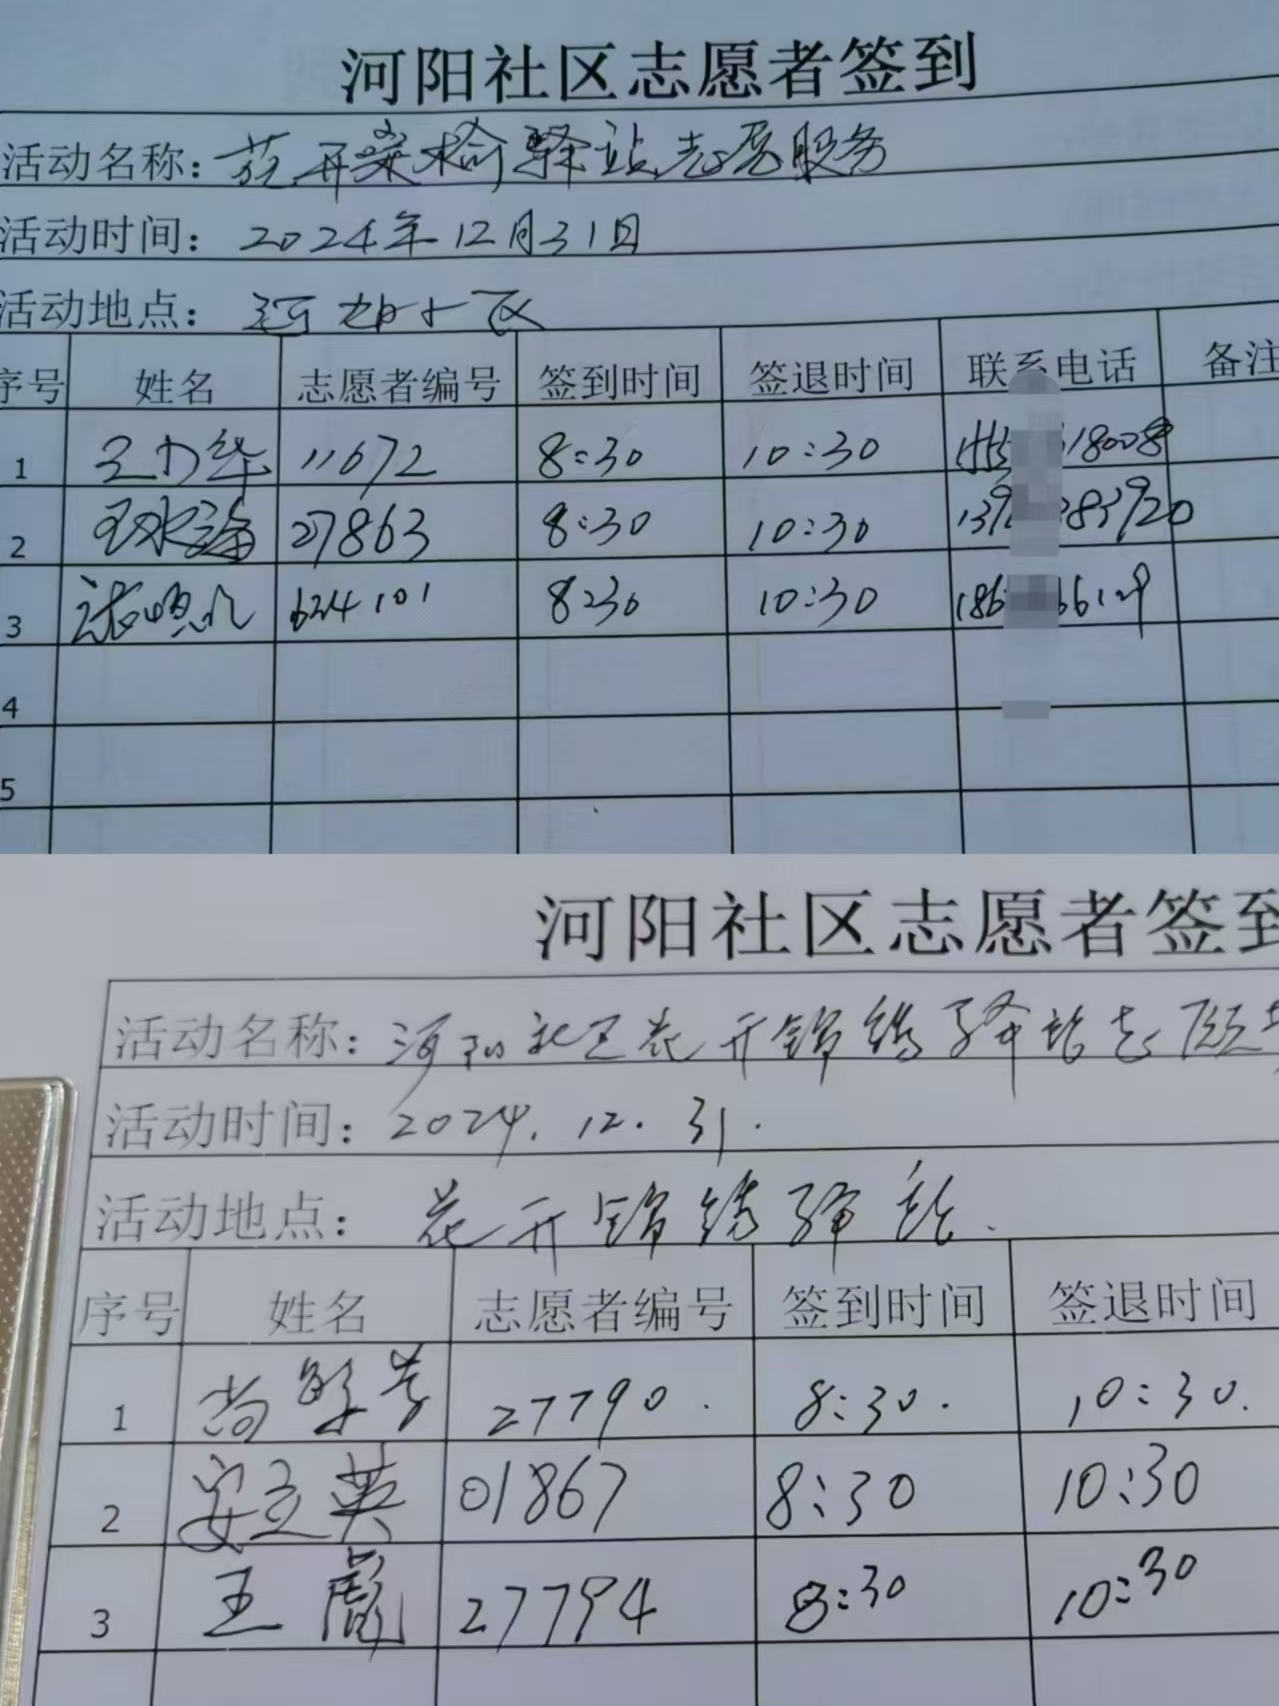 河阳社区志愿者签到
活动名称：花开 驿站志愿服务
活动时间：2024年12月31日
活动地点：河阳小区
序号 姓名 志愿者编号 签到时间 签退时间 联系电话 备注
1 王 华 11672 8:30 10:30 18008
2 王 27863 8:30 10:30 139 83920
3 624101 8:30 10:30 186
4
5
河阳社区志愿者签到
活动名称：河阳社区花开锦绣驿站志愿
活动时间：2024.12.31.
活动地点：花开锦绣驿站.
序号 姓名 志愿者编号 签到时间 签退时间
1 尚 27790. 8:30. 10:30.
2 安立英 01867 8:30 10:30
3 王彪 27794 8:30 10:30